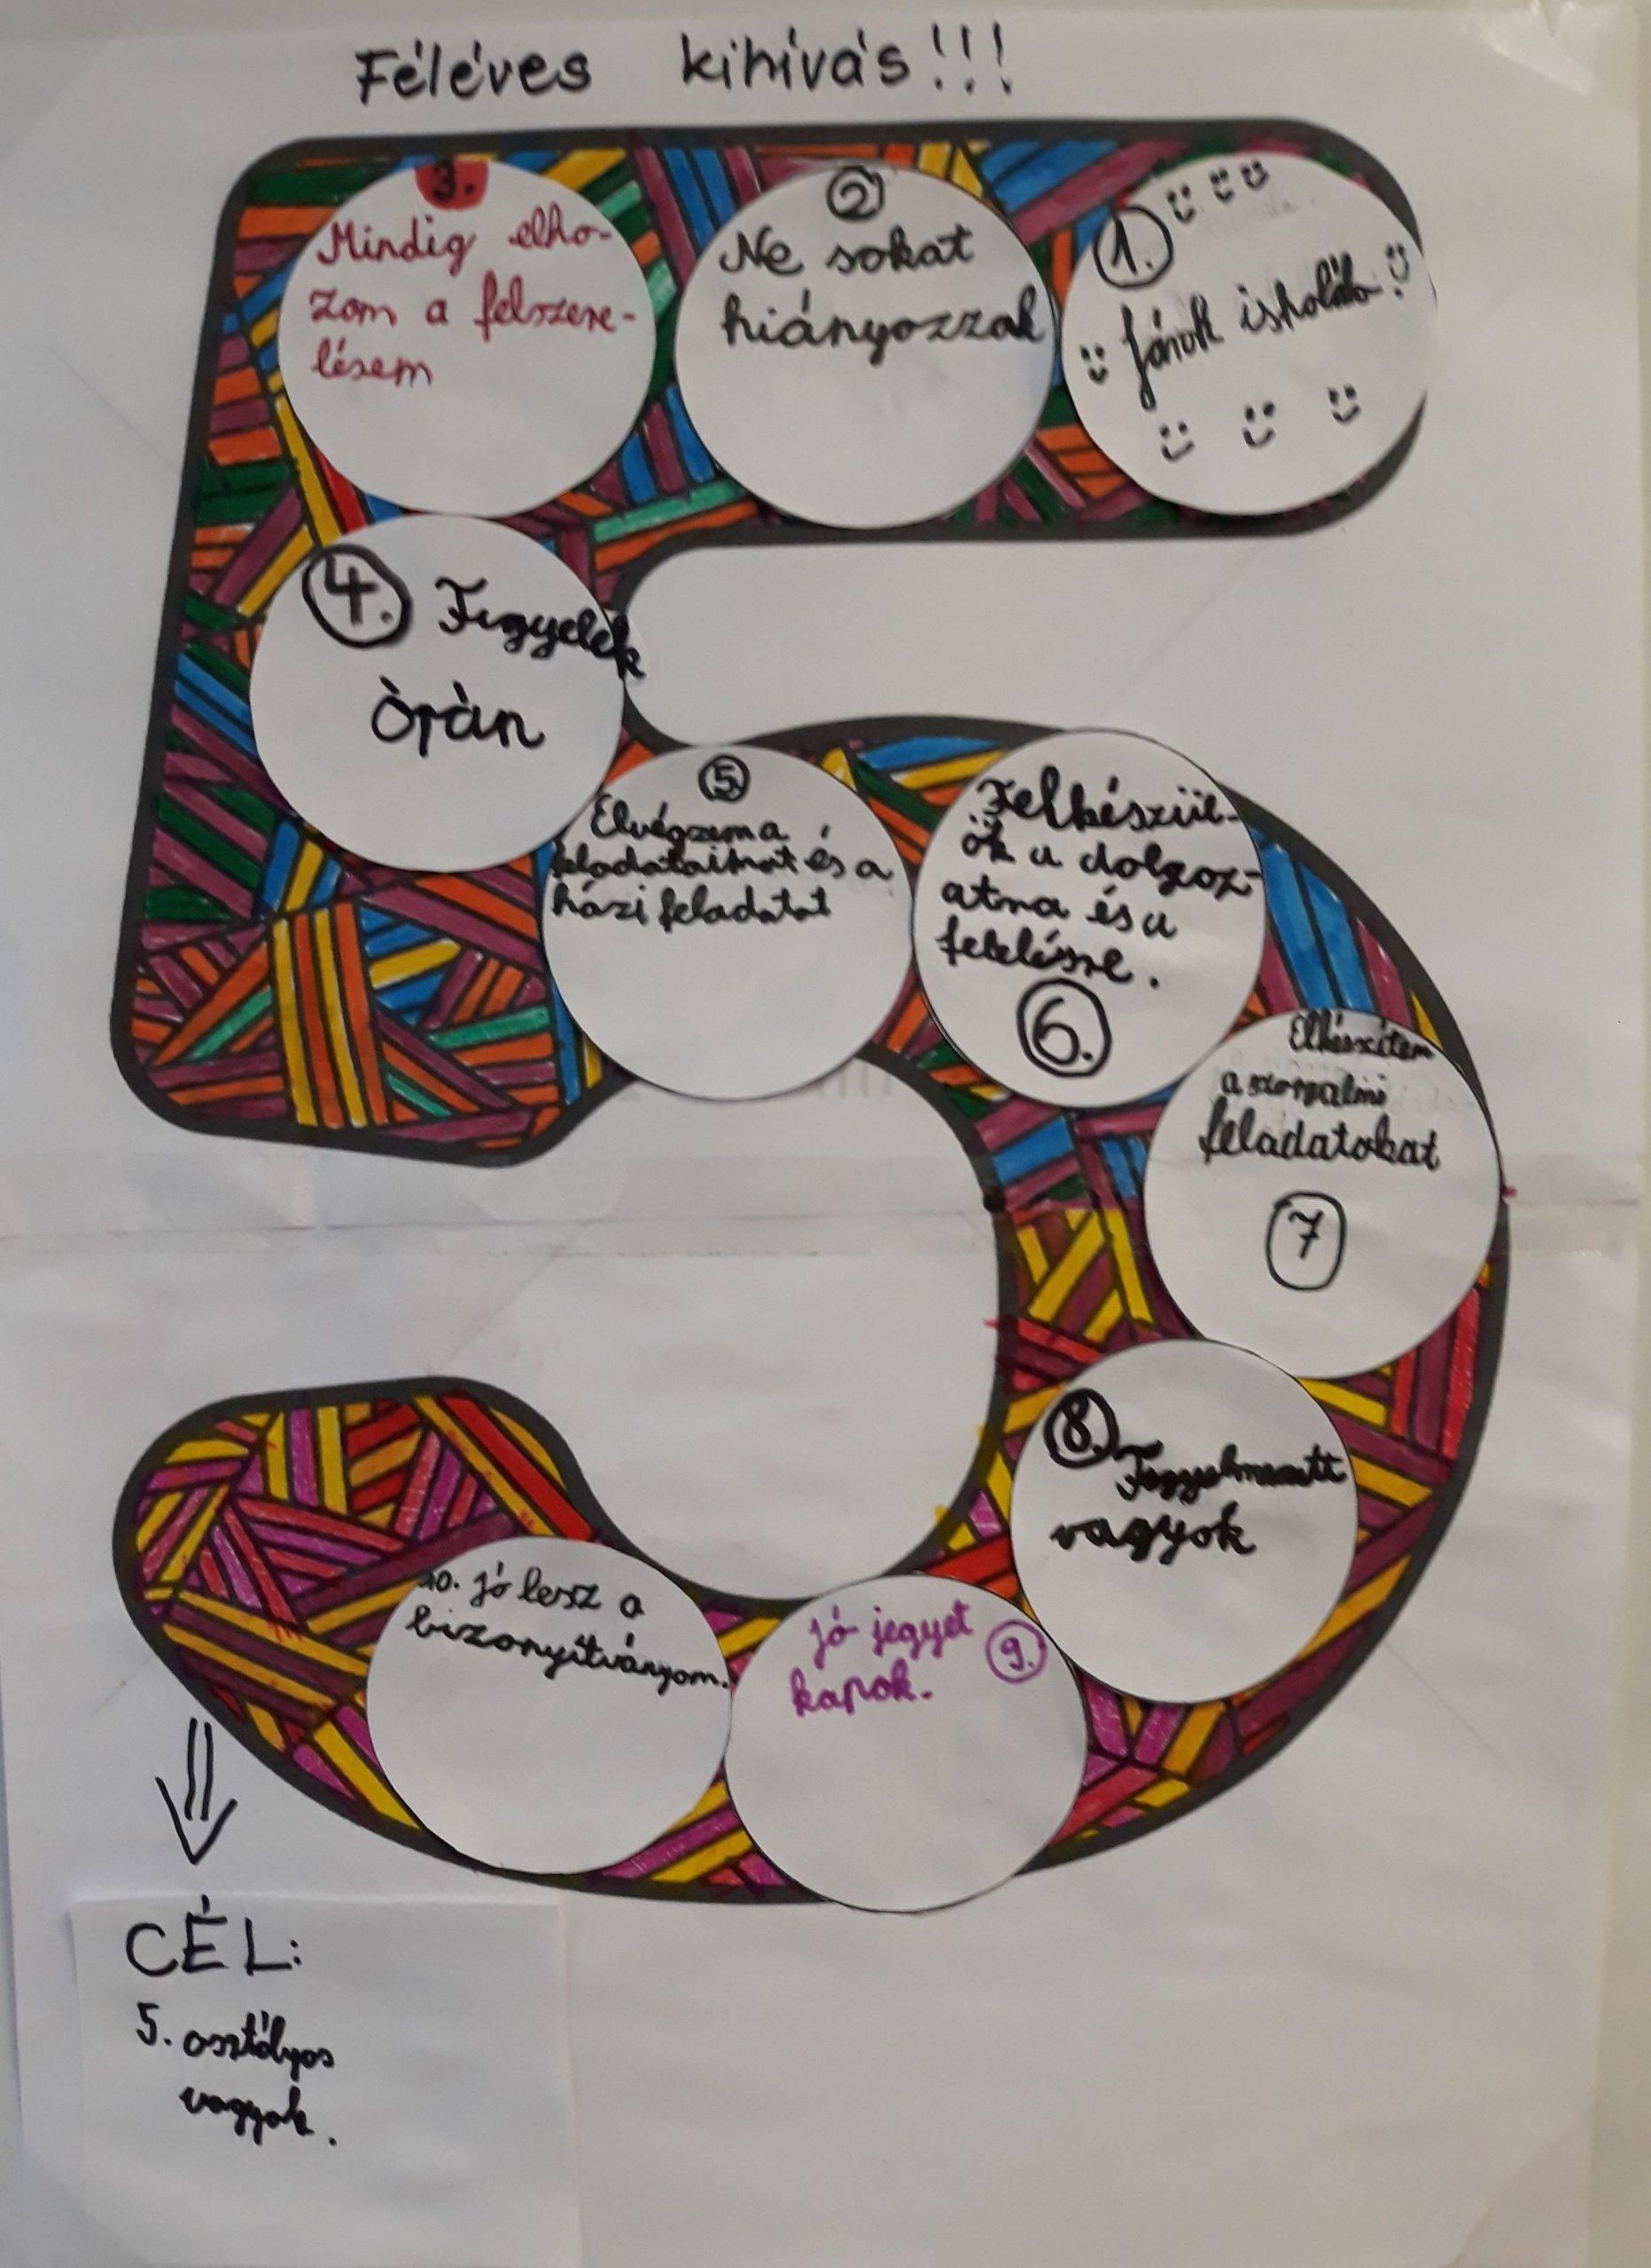 Féléves kihívás!!!
1.
Járok iskolába
2
Ne sokat
hiányozzak
3.
Mindig elho-
zom a felszere-
lésem
4. Figyelek
Òràn
5.
Elvégzem a
feladataimat és a
házi feladatot
Felkészül-
ök a dolgoz-
atra és a
felelésre.
6.
Elkészítem
a szorgalmi
feladatokat
7
8. Fegyelmezett
vagyok
Jó jegyet
kapok.
9.
10. jó lesz a
bizonyítványom.
CÉL:
5. osztályos
vagyok.